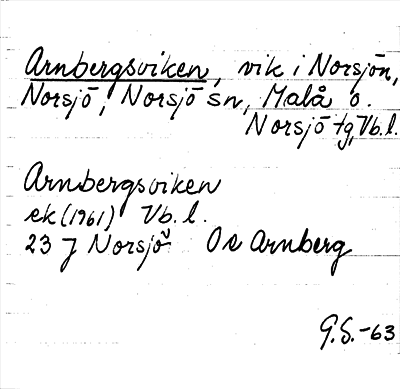 Arnbergsviken, vik i Norsjön,
Norsjö, Norsjö sn, Malå o.
Norsjö tg, Vb.l.
Arnbergsviken
ek (1961) Vb.l.
23 J Norsjö Arnberg
G.S.-63